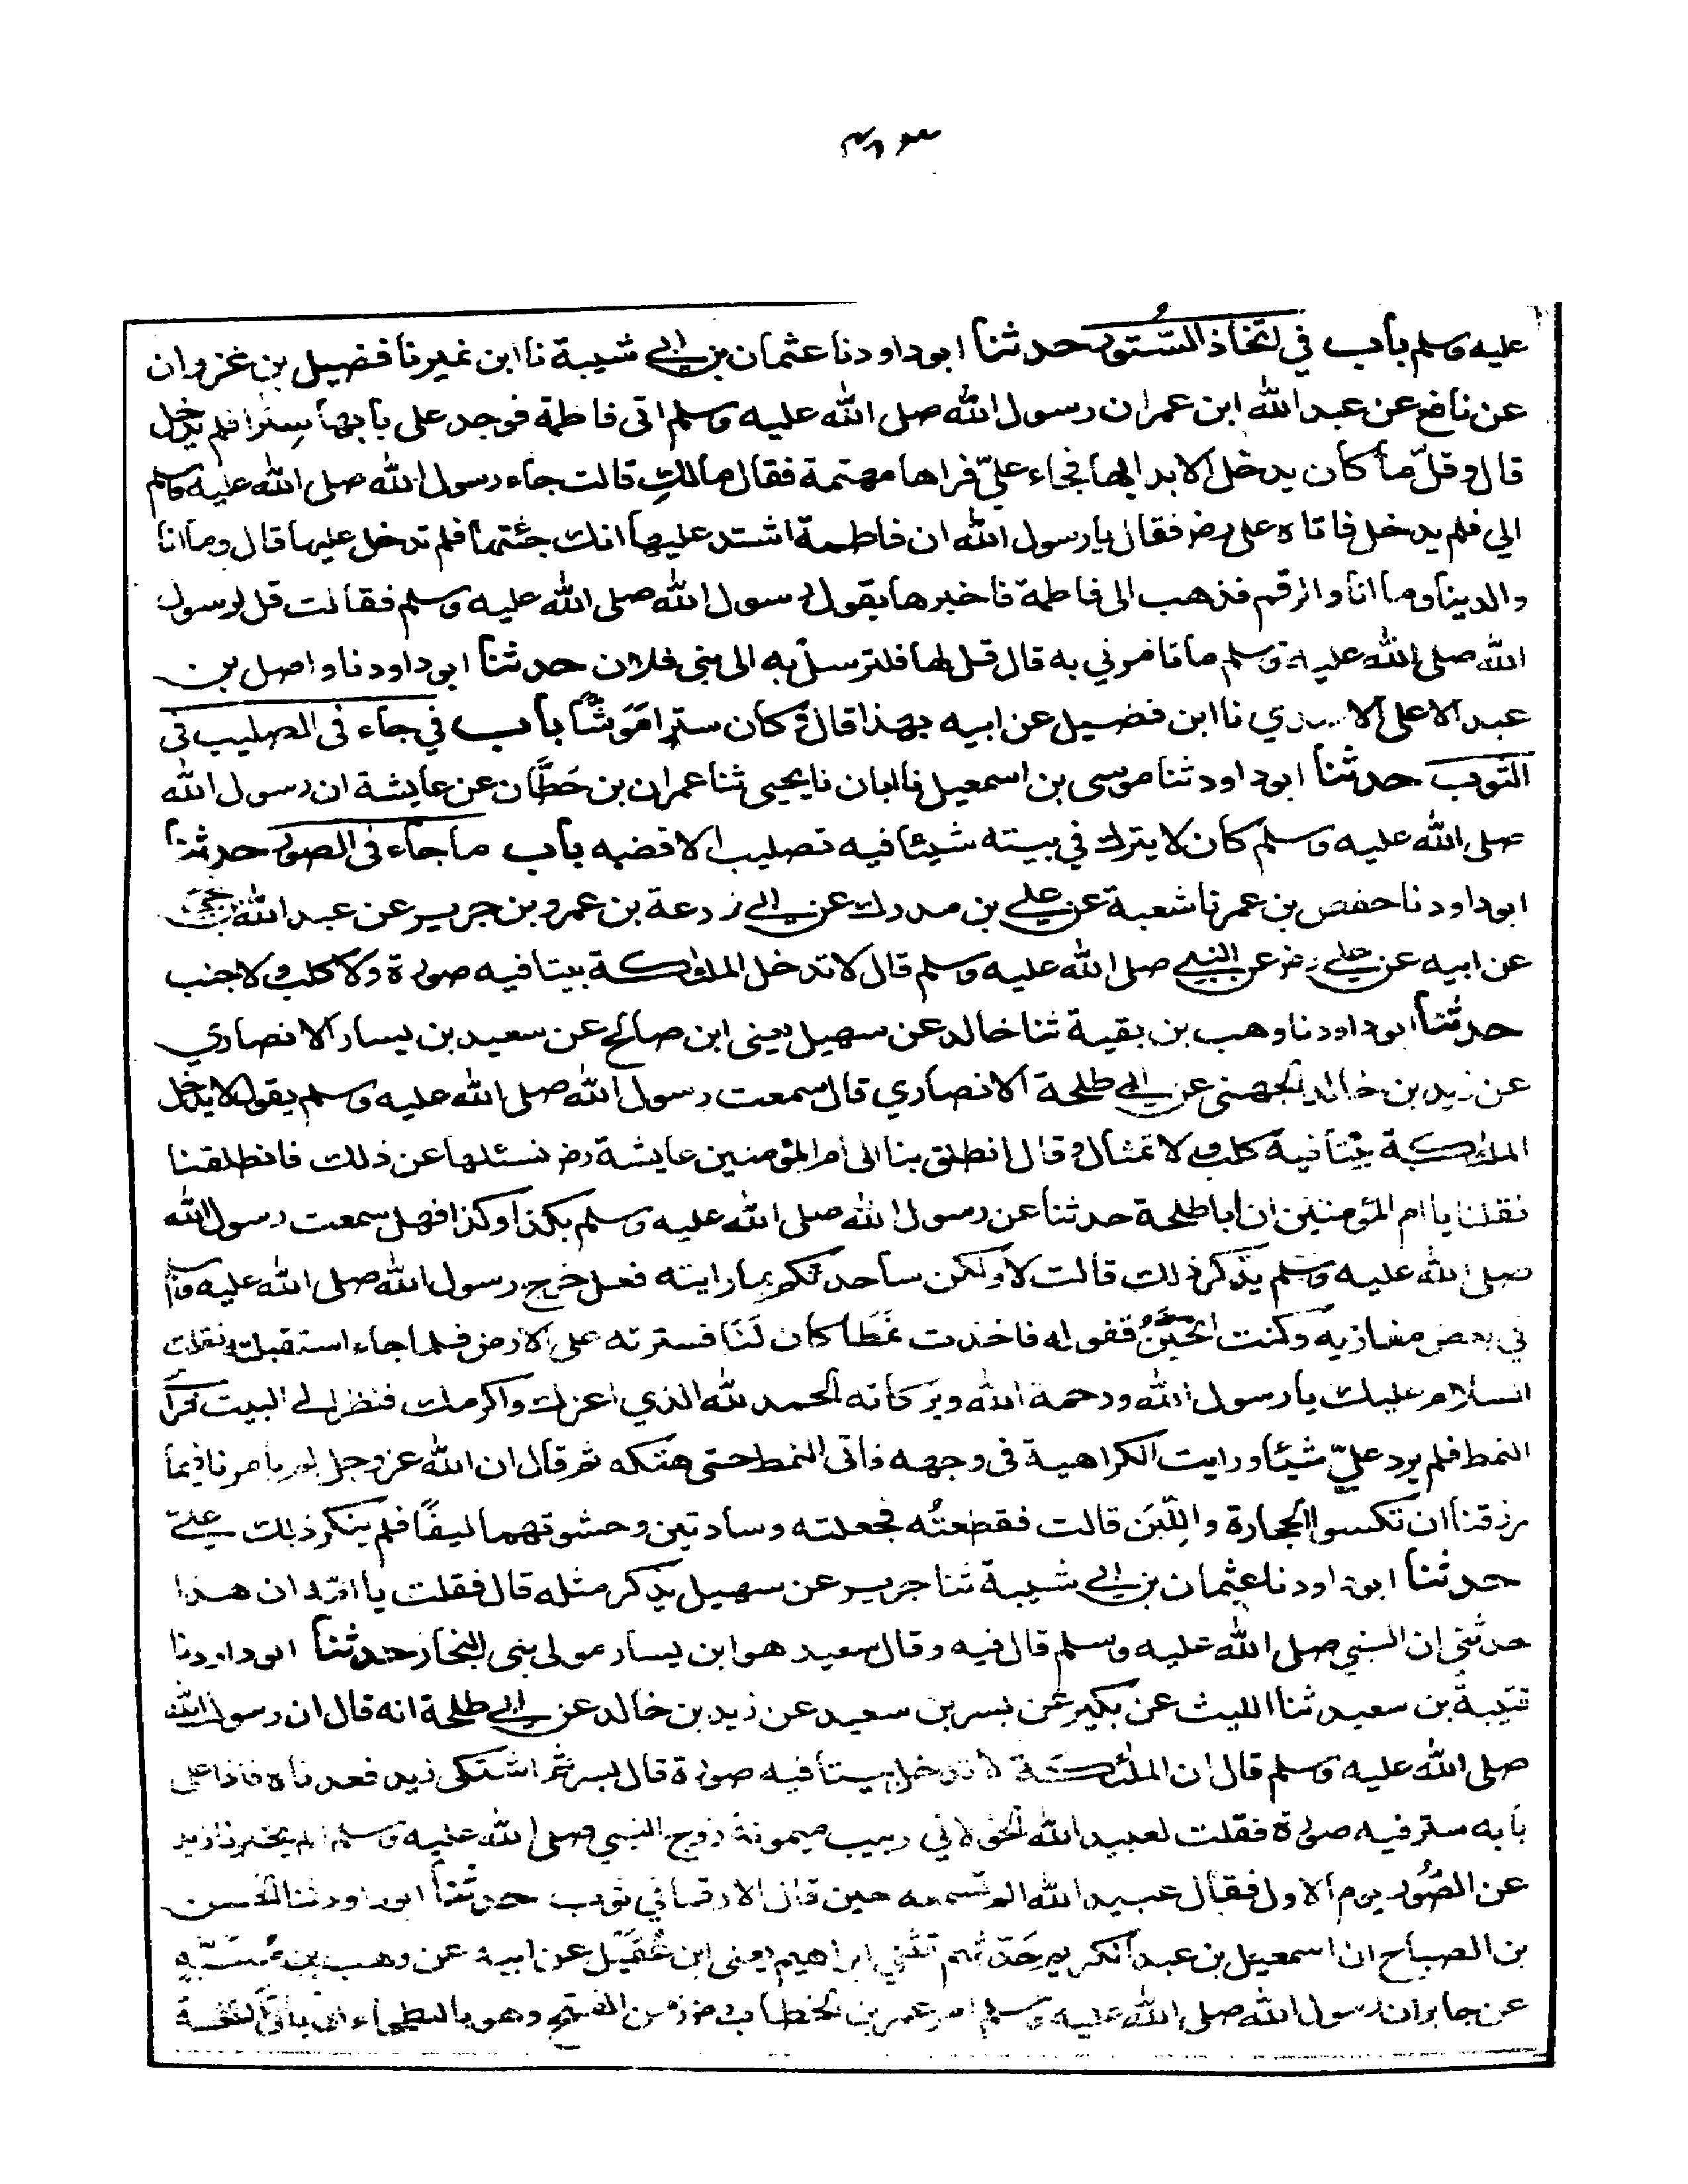 عليه وسلم باب في اتخاذ الستور حدثنا ابوداود نا عثمان بن ابي شيبة نا ابن نمير نا فضيل بن غزوان
عن نافع عن عبد الله ابن عمر ان رسول الله صلى الله عليه وسلم اتى فاطمة فوجد على بابها سِترا فلم يدخل
قال وقلّ ما كان يدخل الا بدا بها فجاء عليّ فراها مهتمة فقال مالكِ قالت جاء رسول الله صلى الله عليه وسلم
الي فلم يدخل فاتاه علي رضـ فقال يا رسول الله ان فاطمة اشتد عليها انك جئتها فلم تدخل عليها قال وما انا
والدينا وما انا والرقم فذهب الى فاطمة فاخبرها بقول رسول الله صلى الله عليه وسلم فقالت قل لرسول
الله صلى الله عليه وسلم ما تامرني به قال قل لها فلترسل به الى بني فلان حدثنا ابوداود نا واصل بن
عبد الاعلى الاسدي نا ابن فضيل عن ابيه بهذا قال وكان سترا مَوشّا باب في جاء فى الصليب فى
الثوب حدثنا ابوداود ثنا موسى بن اسمعيل نا ابان نا يحيى ثنا عمران بن حَطَّان عن عايشة ان رسول الله
صلى الله عليه وسلم كان لا يترك في بيته شيئا فيه تصليب الا قضبه باب ما جاء فى الصور حدثنا
ابوداود نا حفص بن عمر نا شعبة عن علي بن مدرك عن ابي زرعة بن عمرو بن جرير عن عبد الله بن نجي
عن ابيه عن علي رضـ عن النبي صلى الله عليه وسلم قال لا تدخل الملئكة بيتا فيه صورة ولا كلب ولا جنب
حدثنا ابوداود نا وهب بن بقية ثنا خالد عن سهيل يعنى ابن صالح عن سعيد بن يسار الانصاري
عن زيد بن خالد الجهنى عن ابي طلحة الانصاري قال سمعت رسول الله صلى الله عليه وسلم يقول لا يدخل
الملئكة بيتا فيه كلب ولا تمثال وقال انطلق بنا الى ام المؤمنين عايشة رضـ نسئلها عن ذلك فانطلقنا
فقلنا يا ام المؤمنين ان ابا طلحة حدثنا عن رسول الله صلى الله عليه وسلم بكذا وكذا فهل سمعت رسول الله
صلى الله عليه وسلم يذكر ذلك قالت لا ولكن ساحدثكم بما رايته فعل خرج رسول الله صلى الله عليه وسلم
في بعض مغازيه وكنت اتحَيَّنُ قفوله فاخذت نمَطا كان لَنَا فسترته على الارض فلما جاء استقبلته فقلت
السلام عليك يا رسول الله ورحمة الله وبركاته الحمد لله الذي اعزك واكرمك فنظر الى البيت فرأ
النمط فلم يرد عليّ شيئا ورايت الكراهية فى وجهه فاتى النمط حتى هتكه ثم قال ان الله عز وجل لم يامرنا فيما
رزقنا ان نكسوا الحجارة واللَّبَن قالت فقطعتُه فجعلته وسادتين وحشوتهما ليفًا فلم ينكر ذلك عليّ
حدثنا ابوداود نا عثمان بن ابي شيبة ثنا جرير عن سهيل يذكر مثله قال فقلت يا امّه ان هذا
حدثنى ان النبي صلى الله عليه وسلم قال فيه وقال سعيد هو ابن يسار مولى بنى النجار حدثنا ابوداود نا
قتيبة بن سعيد ثنا الليث عن بكير عن بسر بن سعيد عن زيد بن خالد عن ابي طلحة انه قال ان رسول الله
صلى الله عليه وسلم قال ان الملئكة لا تدخل بيتا فيه صورة قال بسر ثم اشتكى زيد فعدناه فاذا على
بابه ستر فيه صورة فقلت لعبيد الله الخولاني ربيب ميمونة زوج النبي صلى الله عليه وسلم الم يخبرنا زيد
عن الصُّور يوم الاول فقال عبيد الله الم تسمعه حين قال الا رقما في ثوب حدثنا ابوداود ثنا الحسن
بن الصباح ان اسمعيل بن عبد الكريم حَدّثهم ثني ابراهيم يعنى ابن عُقَيل عن ابيه عن وهب بن مُنَبّهٍ
عن جابر ان رسول الله صلى الله عليه وسلم امر عمر بن الخطاب رضـ زمن الفتح وهو بالبطحاء ان ياتى الكعبة